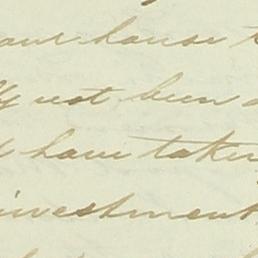 our house
not been
have taken
investment